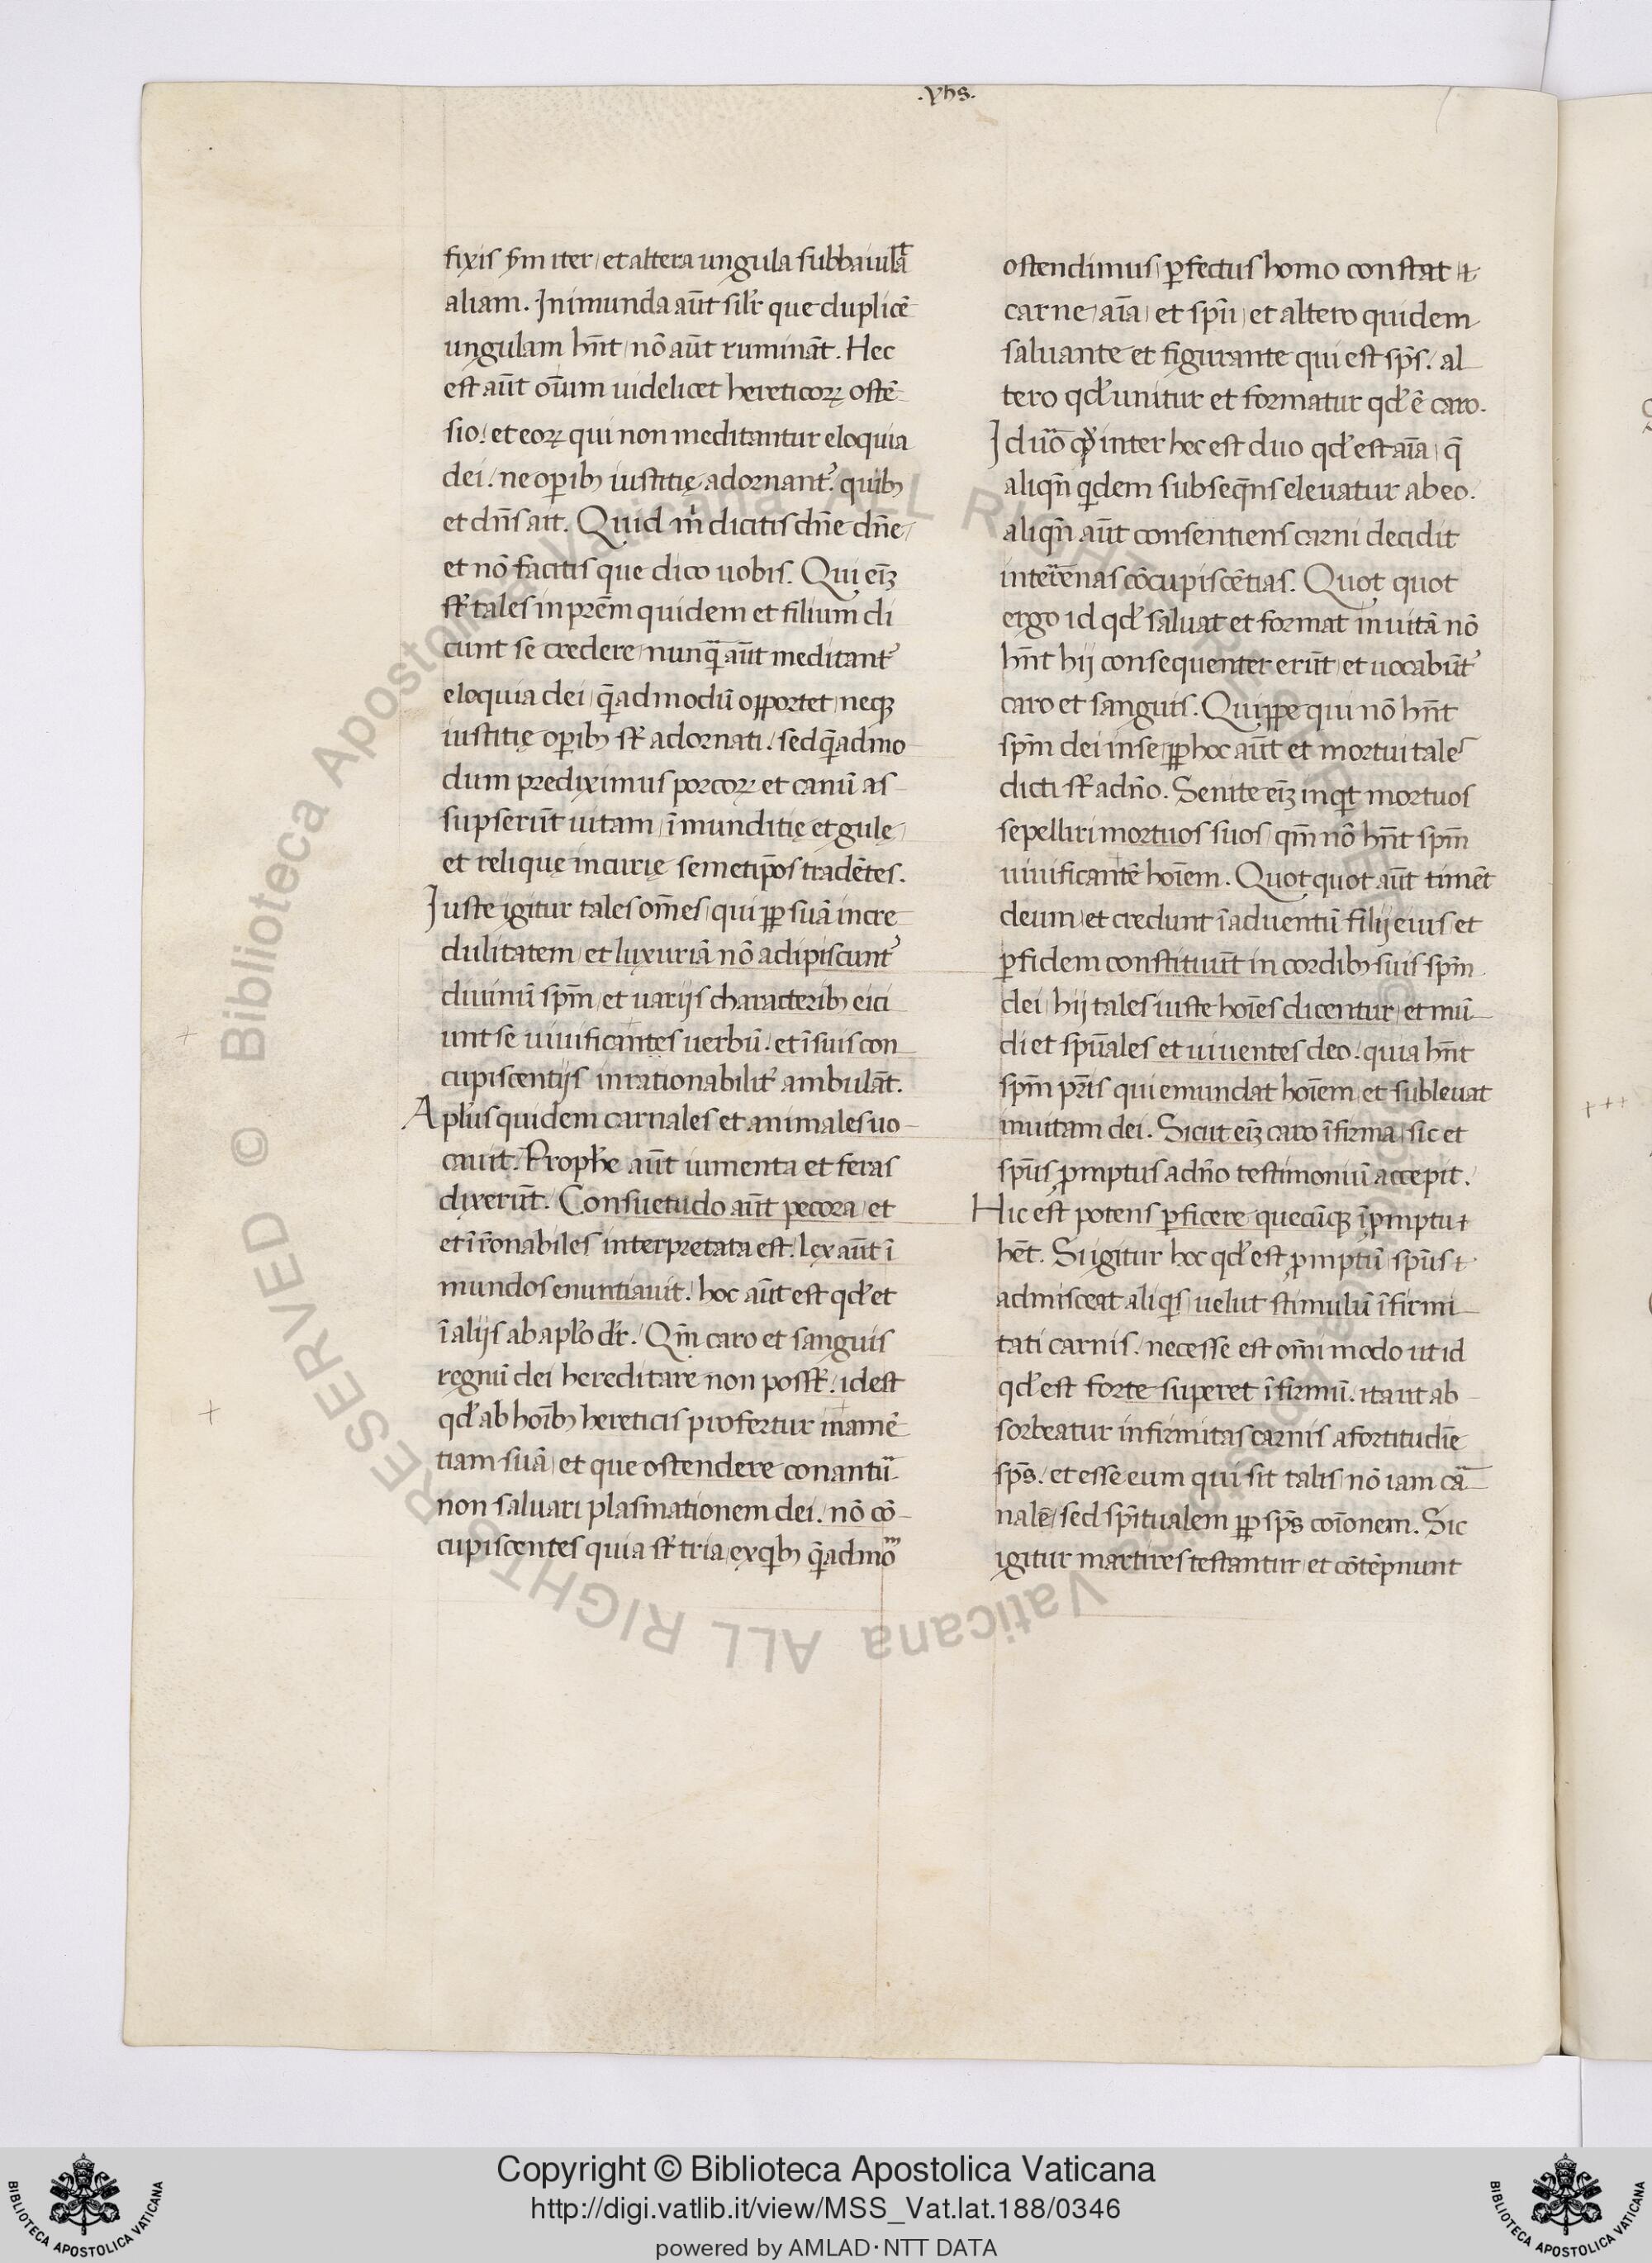 .yhs.
fixis ẏm iter et altera ungula subbaiulāt
aliam. Jnimunda aūt silr̄ que duplicē
ungulam hn̄t nō aūt rumināt. Hec
est aūt oīum uidelicet hereticoꝝ ostē
sio. et eoꝝ qui non meditantur eloquia
dei. ne oꝑibꝫ iustitię adornant᷑. quibꝫ
et dn̄s ait. Quid m̄ dicitis dn̄e dn̄e
et nō facitis que dico uobis. Qui eīꝫ
st̄ tales in prēm quidem et filium di
cunt se credere nunq̄ aūt meditant᷑
eloquia dei q̄admodū opportet neqꝫ
iustitię oꝑibꝫ st̄ adornati. sed q̄admo
dum prediximus porcoꝝ et canū as
supserūt uitam īmunditię et gulę
et relique incurię semetip̄os tradētes.
Juste igitur tales om̄es qui ꝓꝑ suā incre
dulitatem et luxuriā nō adipiscunt᷑
diuinū spm̄ et uarijs characteribꝫ eici
unt se uiuificantes uerbū. et ī suis con
cupiscentijs inrationabilit᷑ ambulāt.
Apl̄us quidem carnales et animales uo
cauit. Prophe aūt iumenta et feras
dixerūt. Consuetudo aūt pecora et
et īrōnabiles interpretata est. lex aūt ī
mundos enuntiauit. hoc aūt est qđ et
ī alijs ab apl̄o dr̄. Qm̄ caro et sanguis
regnū dei hereditare non posst̄. idest
qđ ab hoībꝫ hereticis profertur in amē
tiam suā et que ostendere conantū
non saluari plasmationem dei. nō cō
cupiscentes quia st̄ tria ex qibꝫ q̄admō
ostendimus ꝑfectus homo constat
carne aīa et spū et altero quidem
saluante et figurante qui est sps̄. al
tero qđ unitur et formatur qđ ē caro.
Jd uō qđ inter hec est duo qđ est aīa q̄
aliqn̄ qdem subseqn̄s eleuatur ab eo.
aliqn̄ aūt consentiens carni decidit
in terrēnas cōcupiscētias. Quot quot
ergo id qđ saluat et format in uitā nō
hn̄t hij consequenter erūt et uocabūt᷑
caro et sanguis. Quippe qui nō hn̄t
spm̄ dei in se ꝓꝑ hoc aūt et mortui tales
dicti st̄ a dn̄o. Senite eīꝫ inqt mortuos
sepelliri mortuos suos qm̄ nō hn̄t spm̄
uiuificantē hoīem. Quot quot aūt timēt
deum et credunt ī aduentū filij eius et
ꝑ fidem constituūt in cordibꝫ suis spm̄
dei hij tales iuste hoīes dicentur et mū
di et spūales et uiuentes deo. quia hn̄t
spm̄ prīs qui emundat hoīem et subleuat
in uitam dei. Sicut eīꝫ caro īfirma sic et
spūs ꝓmptus a dn̄o testimoniū accepit.
Hic est potens ꝑficere quecūqꝫ ī ꝓmptu
hēt. Si igitur hoc qđ est ꝓmptū spūs
admisceat aliqs uelut stimulū īfirmi
tati carnis. necesse est om̄i modo ut id
qđ est forte superet īfirmū. ita ut ab
sorbeatur infirmitas carnis a fortitudīe
sps̄. et esse eum qui sit talis nō iam cā
nalē sed spītualem ꝓꝑ sps̄ coīonem. Sic
igitur martires testantur et cōtēpnunt
© Biblioteca Apostolica Vaticana ALL RIGHTS RESERVED
Copyright © Biblioteca Apostolica Vaticana
http://digi.vatlib.it/view/MSS_Vat.lat.188/0346
powered by AMLAD·NTT DATA
BIBLIOTECA APOSTOLICA VATICANA
BIBLIOTECA APOSTOLICA VATICANA